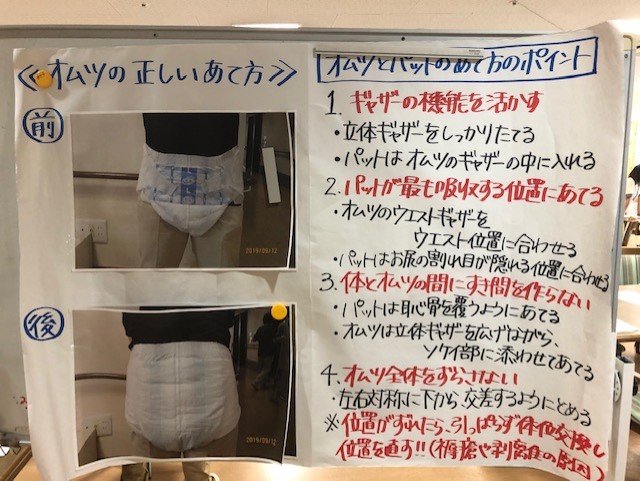 ≪オムツの正しいあて方≫
前
2019/09/12
後
2019/09/12
オムツとパットのあて方のポイント
1. ギャザーの機能を活かす
・立体ギャザーをしっかりたてる
・パットはオムツのギャザーの中に入れる
2. パットが最も吸収する位置にあてる
・オムツのウエストギャザを
ウエスト位置に合わせる
・パットはお尻の割れ目が隠れる位置に合わせる
3. 体とオムツの間にすき間を作らない
・パットは恥骨を覆うようにあてる
・オムツは立体ギャザを広げながら、
ソケイ部に添わせてあてる
4. オムツ全体をずらさない
・左右対称に下から交差するようにとめる
※位置がずれたら、引っぱらず体位交換し
位置を直す!!(褥瘡や剥離の原因)